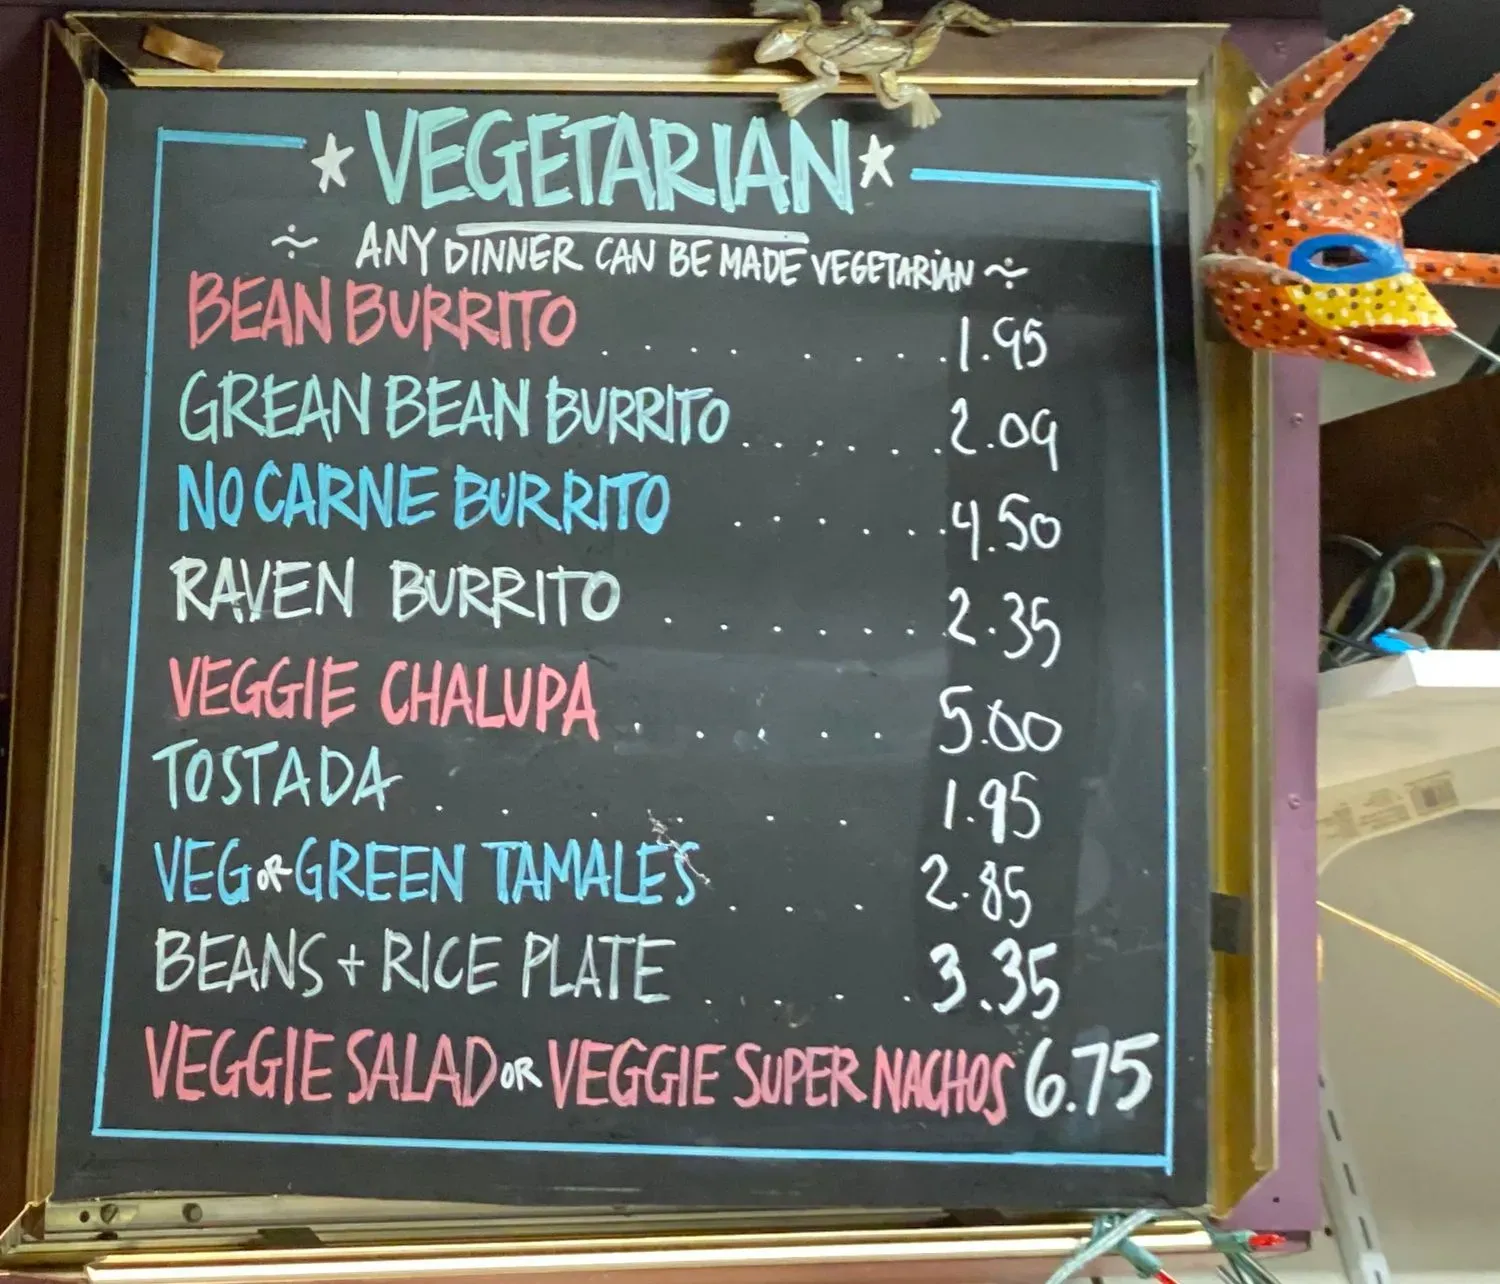 VEGETARIAN
ANY DINNER CAN BE MADE VEGETARIAN
BEAN BURRITO ............ 1.95
GREAN BEAN BURRITO ........ 2.09
NO CARNE BURRITO ....... 4.50
RAVEN BURRITO ....... 2.35
VEGGIE CHALUPA ..... 5.00
TOSTADA ..... 1.95
VEG OR GREEN TAMALES ... 2.85
BEANS + RICE PLATE ..... 3.35
VEGGIE SALAD OR VEGGIE SUPER NACHOS 6.75